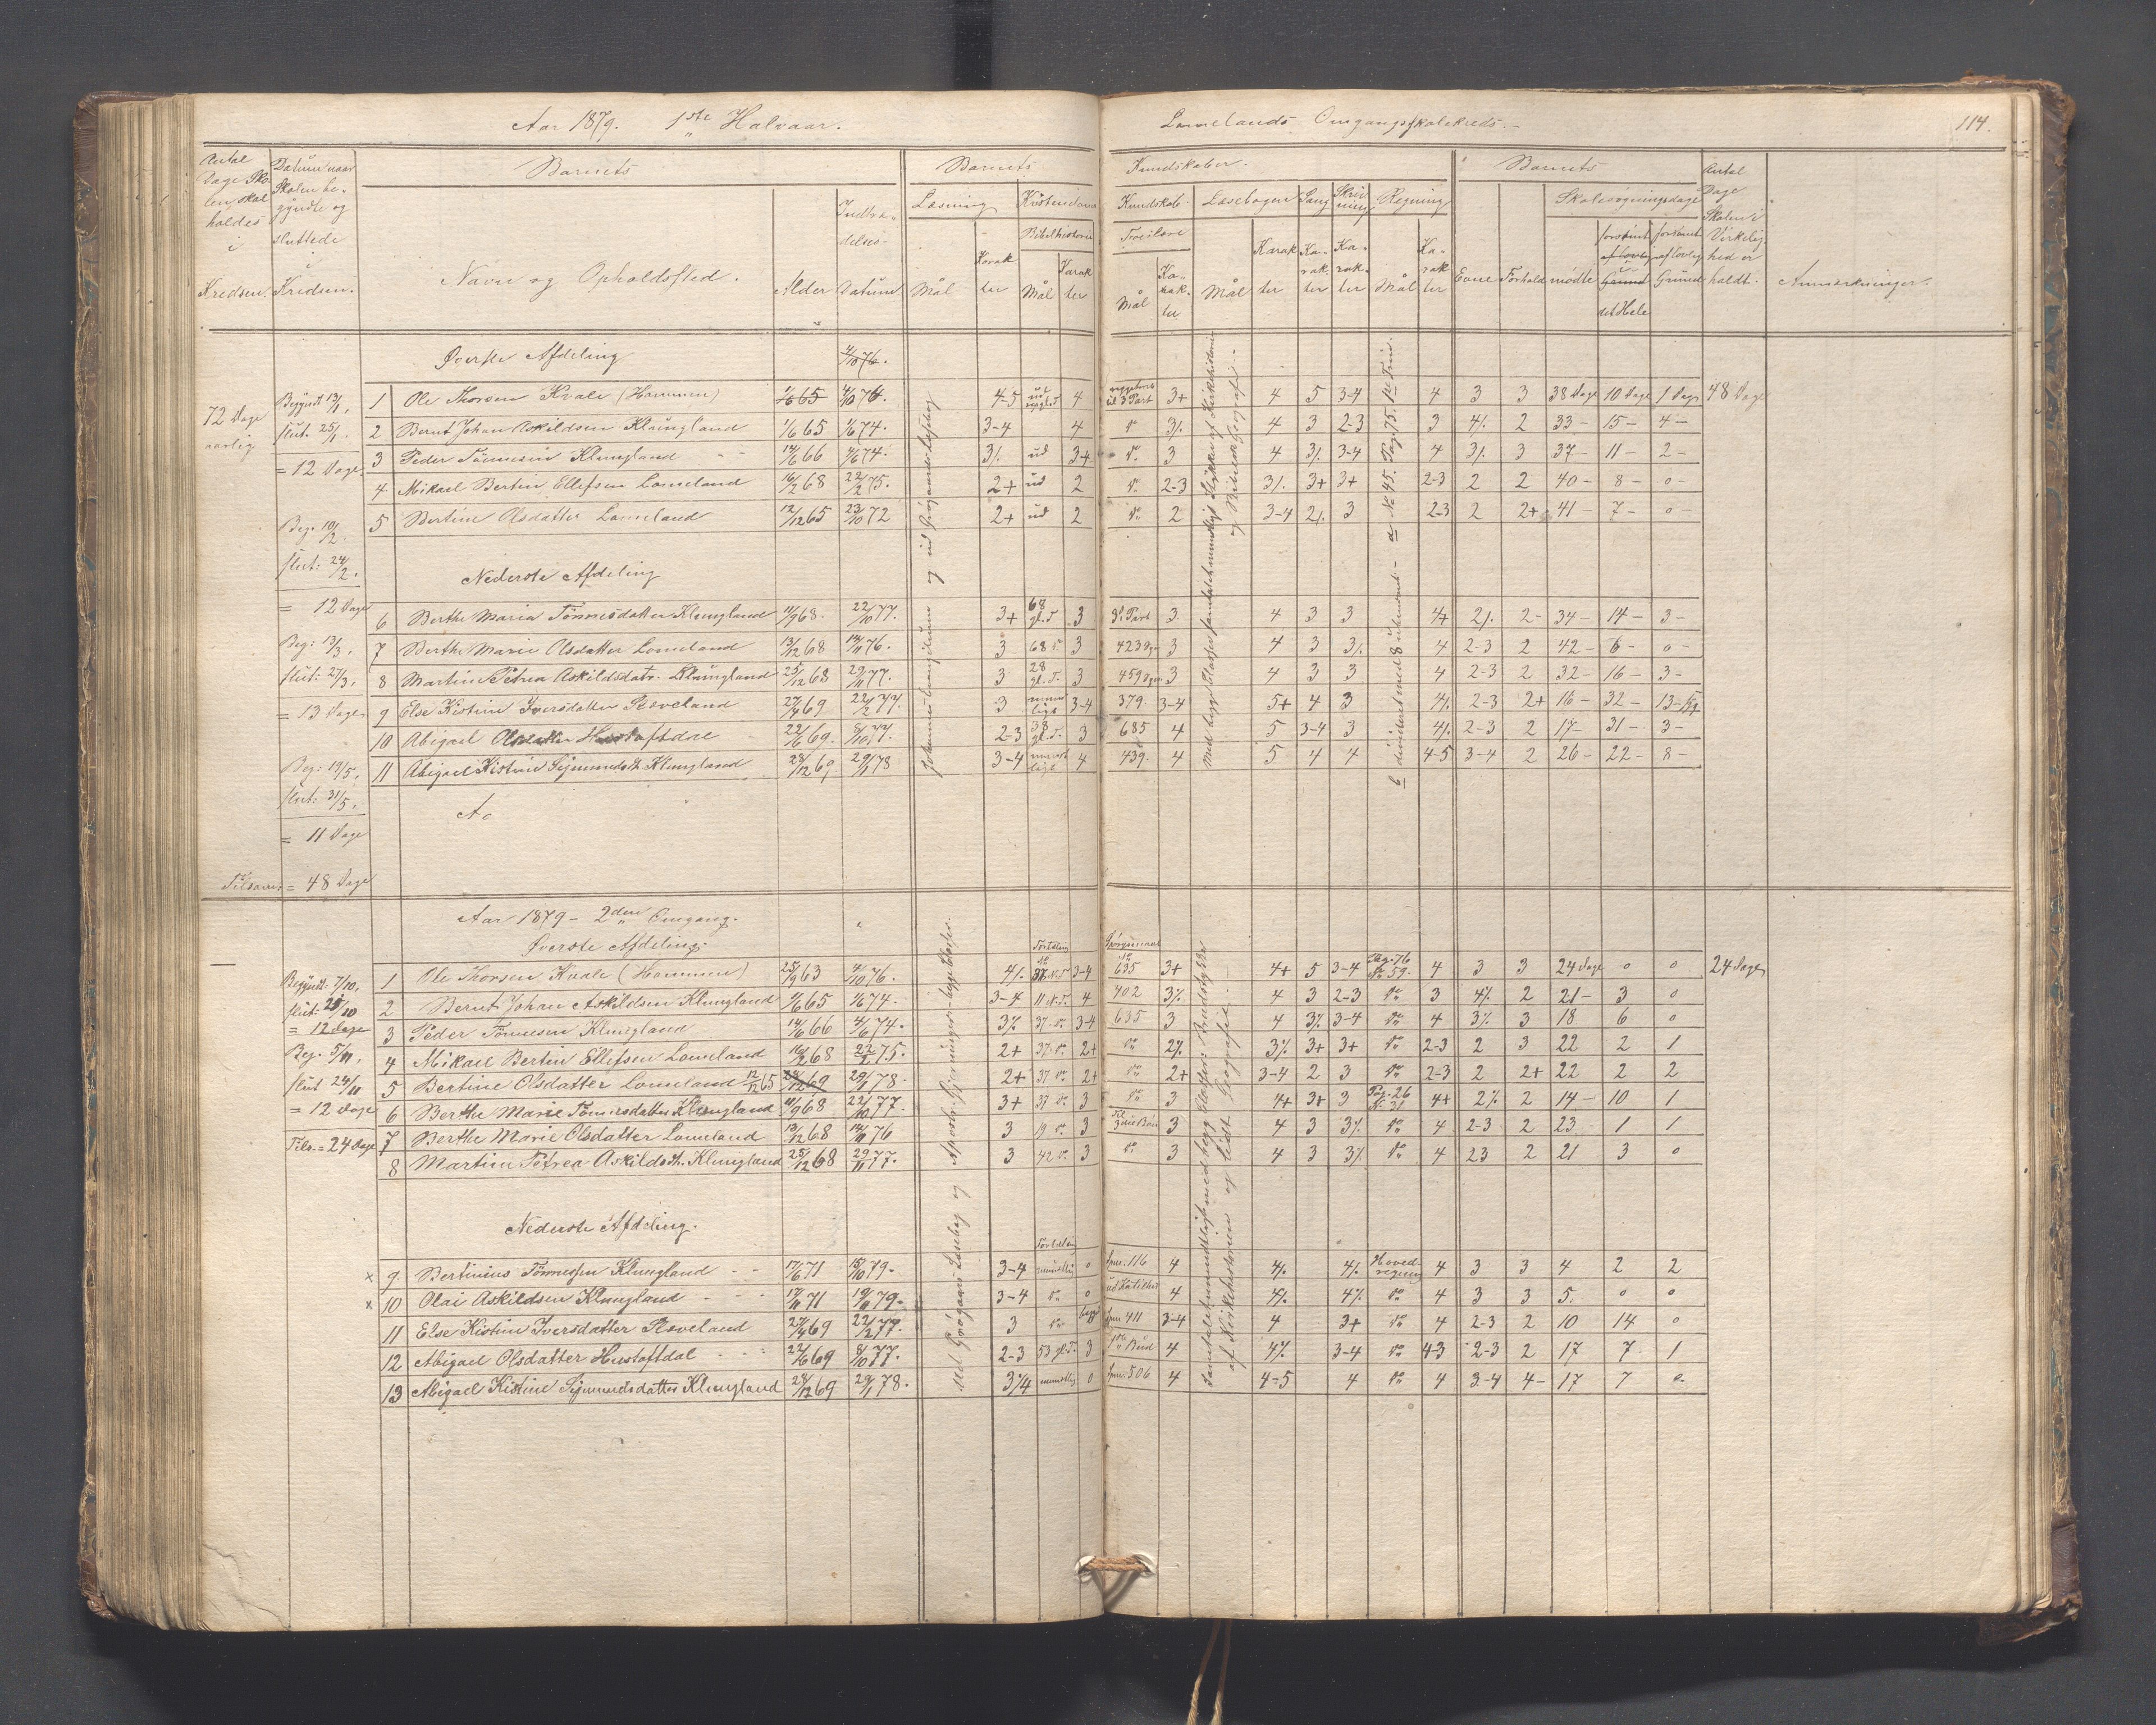 Aar 1879. 1ste Halvaar.
Lomelands Omgangsskolekreds.
114.
Antal Dage Skolen skal holdes i Kredsen.
Datum naar Skolen begyndte og sluttede i Kredsen.
Barnets
Navn og Opholdssted.
Alder
Indtrædelses-Datum
Barnets
Kundskaber.
Læsning
Maal
Karakter
Kristendoms
Kundskab
Bibelhistorie
Maal
Karakter
Troeslære
Maal
Karakter
Læsebogen
Maal
Karakter
Sang
Karakter
Skrivning
Karakter
Regning
Maal
Karakter
Barnets
Evne
Forhold
Skolesøgningsdage
mødte
forsømt det Hele
forsømt af lovlig Grund
Antal Dage Skolen i Virkelighed er holdt.
Anmærkninger.
72 Dage aarlig
Begyndt 13/1,
slut. 25/1.
= 12 Dage
Beg. 10/2.
slut: 24/2.
= 12 Dage
Beg: 13/3,
slut: 27/3,
= 13 Dage
Beg: 19/5,
slut: 31/5,
= 11 Dage
Tilsam. = 48 Dage
Øverste Afdeling
1 Ole Thorsen Kvale (Hammen) 1/6 65 4/10 76. 4-5 4 3+ 4 5 3-4 4 3 3 38 Dage 10 Dage 1 Dag 48 Dage
2 Bernt Johan Askildsen Klungland 1/6 65 1/6 74. 3-4 4 do 3/. 4 3 2-3 3 4/. 2 33 - 15 - 4 -
3 Peder Tønnesen Klungland 14/6 66 4/6 74. 3/. ud 3+ do 3 4 3/. 3-4 4 3/. 3 37 - 11 - 2 -
4 Mikael Bertin Ellefsen Lomeland 16/2 68 22/2 75. 2+ ud 2 do 2-3 3/. 3+ 3+ 2-3 2 2 40 - 8 - 0 -
5 Bertine Olsdatter Lomeland 12/12 65 23/10 72 2+ ud 2 do 2 3-4 2/. 3 2-3 2 2+ 41 - 7 - 0 -
Nederste Afdeling
6 Berthe Maria Tønnesdatter Klungland 11/9 68. 22/10 77. 3+ 68 gl. T. 3 3. Part 3 4 3 3 4+ 2/. 2- 34 - 14 - 3 -
7 Berthe Marie Olsdatter Lomeland 13/12 68 14/11 76. 3 68 do 3 423 3 4 3 3/. 4 2-3 2 42 - 6 - 0 -
8 Martine Petrea Askildsdatr. Klungland 25/12 68 29/11 77. 3 28 gl. T. 3 459 3 4 3 3 4 2-3 2 32 - 16 - 3 -
9 Else Kistine Iversdatter Røsveland 27/4 69 22/2 77. 3 mundtligt 3-4 379. 3-4 5+ 4 3 4/. 2-3 2+ 16 - 32 - 13 -
10 Abigael Olsdatter Hustoftdal 22/6 69. 8/10 77. 2-3 38 gl. T. 3 685 4 5 3-4 3 4/. 2-3 2 17 - 31 - 3 -
11 Abigael Kistine Sigmundsdt. Klungland 28/12 69 29/1 78 3-4 mundtligt 4 439. 4 5 4 4 4-5 3-4 2 26 - 22 - 8 -
Aa
Aar 1879 - 2den Omgang.
Øverste Afdeling.
Fortælling
Spørgsmaal
Begyndt 7/10,
slut: 20/10
= 12 Dage
Beg. 5/11,
slut 24/11
= 12 Dage
Tils. = 24 Dage
1 Ole Thorsen Kvale (Hammen) 25/9 63 4/10 76. 4/. 37. N. T. 3-4 635 3+ 4+ 5 3-4 Pag. 76 No 59. 4 3 3 24 Dage 0 0 24 Dage
2 Bernt Johan Askildsen Klungland 9/6 65 1/6 74 - 3-4 11 N. T. 4 402 3/. 4 3 2-3 do 3 4/. 2 21 - 3 0
3 Peder Tønnesen Klungland 14/6 66 4/6 74. 3/. 37 do 3-4 635 3 4 3/. 3-4 do 4 3/. 3 18 6 0
4 Mikael Bertin Ellefsen Lomeland 16/2 68 22/2 75. 2+ 37 do 2+ do 2/. 3/. 3+ 3+ do 2-3 2 3 22 2 1
5 Bertine Olsdatter Lomeland 12/12 65 28/12 69 29/1 78. 2+ 37 do 2+ do 2+ 3-4 2 3 do 2-3 2 2+ 22 2 2
6 Berthe Marie Tønnesdatter Klungland 11/9 68 22/10 77. 3+ 37 do 3 do 3 4+ 3+ 3 Pag. 26 No 31 4+ 2/. 2 14 - 10 1
7 Berthe Marie Olsdatter Lomeland 13/12 68 14/11 76 3 19 do 3 Til 3die Bøn 3 4 3 3/. do 4 2-3 2 23 1 1
8 Martine Petrea Askildsdt. Klungland 25/12 68 29/11 77. 3 42 do 3 do 3 4 3 3/. do 4 23 2 21 3 0
Nederste Afdeling.
Fortælling
x 9. Bertinius Tønnessen Klungland 17/6 71 15/10 79. 3-4 mundtlig 0 Spm. 116 4 4/. 4/. Hovedregning 4 3 3 4 2 2
x 10 Olai Askildsen Klungland 17/11 71 19/11 79. 3-4 do 0 4 4/. 4/. do 4 3 3 5. 0 0
11 Else Kistine Iversdatter Røsveland 27/4 69 22/2 77. 3 do Spm 411 3-4 4 3+ do 4 2-3 2 10 14 0
12 Abigael Olsdatter Hustoftdal 22/6 69 8/10 77. 2-3 53 gl. T. 3 Bud 4 4/. 3-4 do 4-3 2-3 2 17 7 1
13 Abigael Kistine Sigmundsdatter Klungland 28/12 69 29/1 78. 3/4 mundtlig 0 Spm. 506 4 4-5 4 do 4 3-4 4- 17 7 0